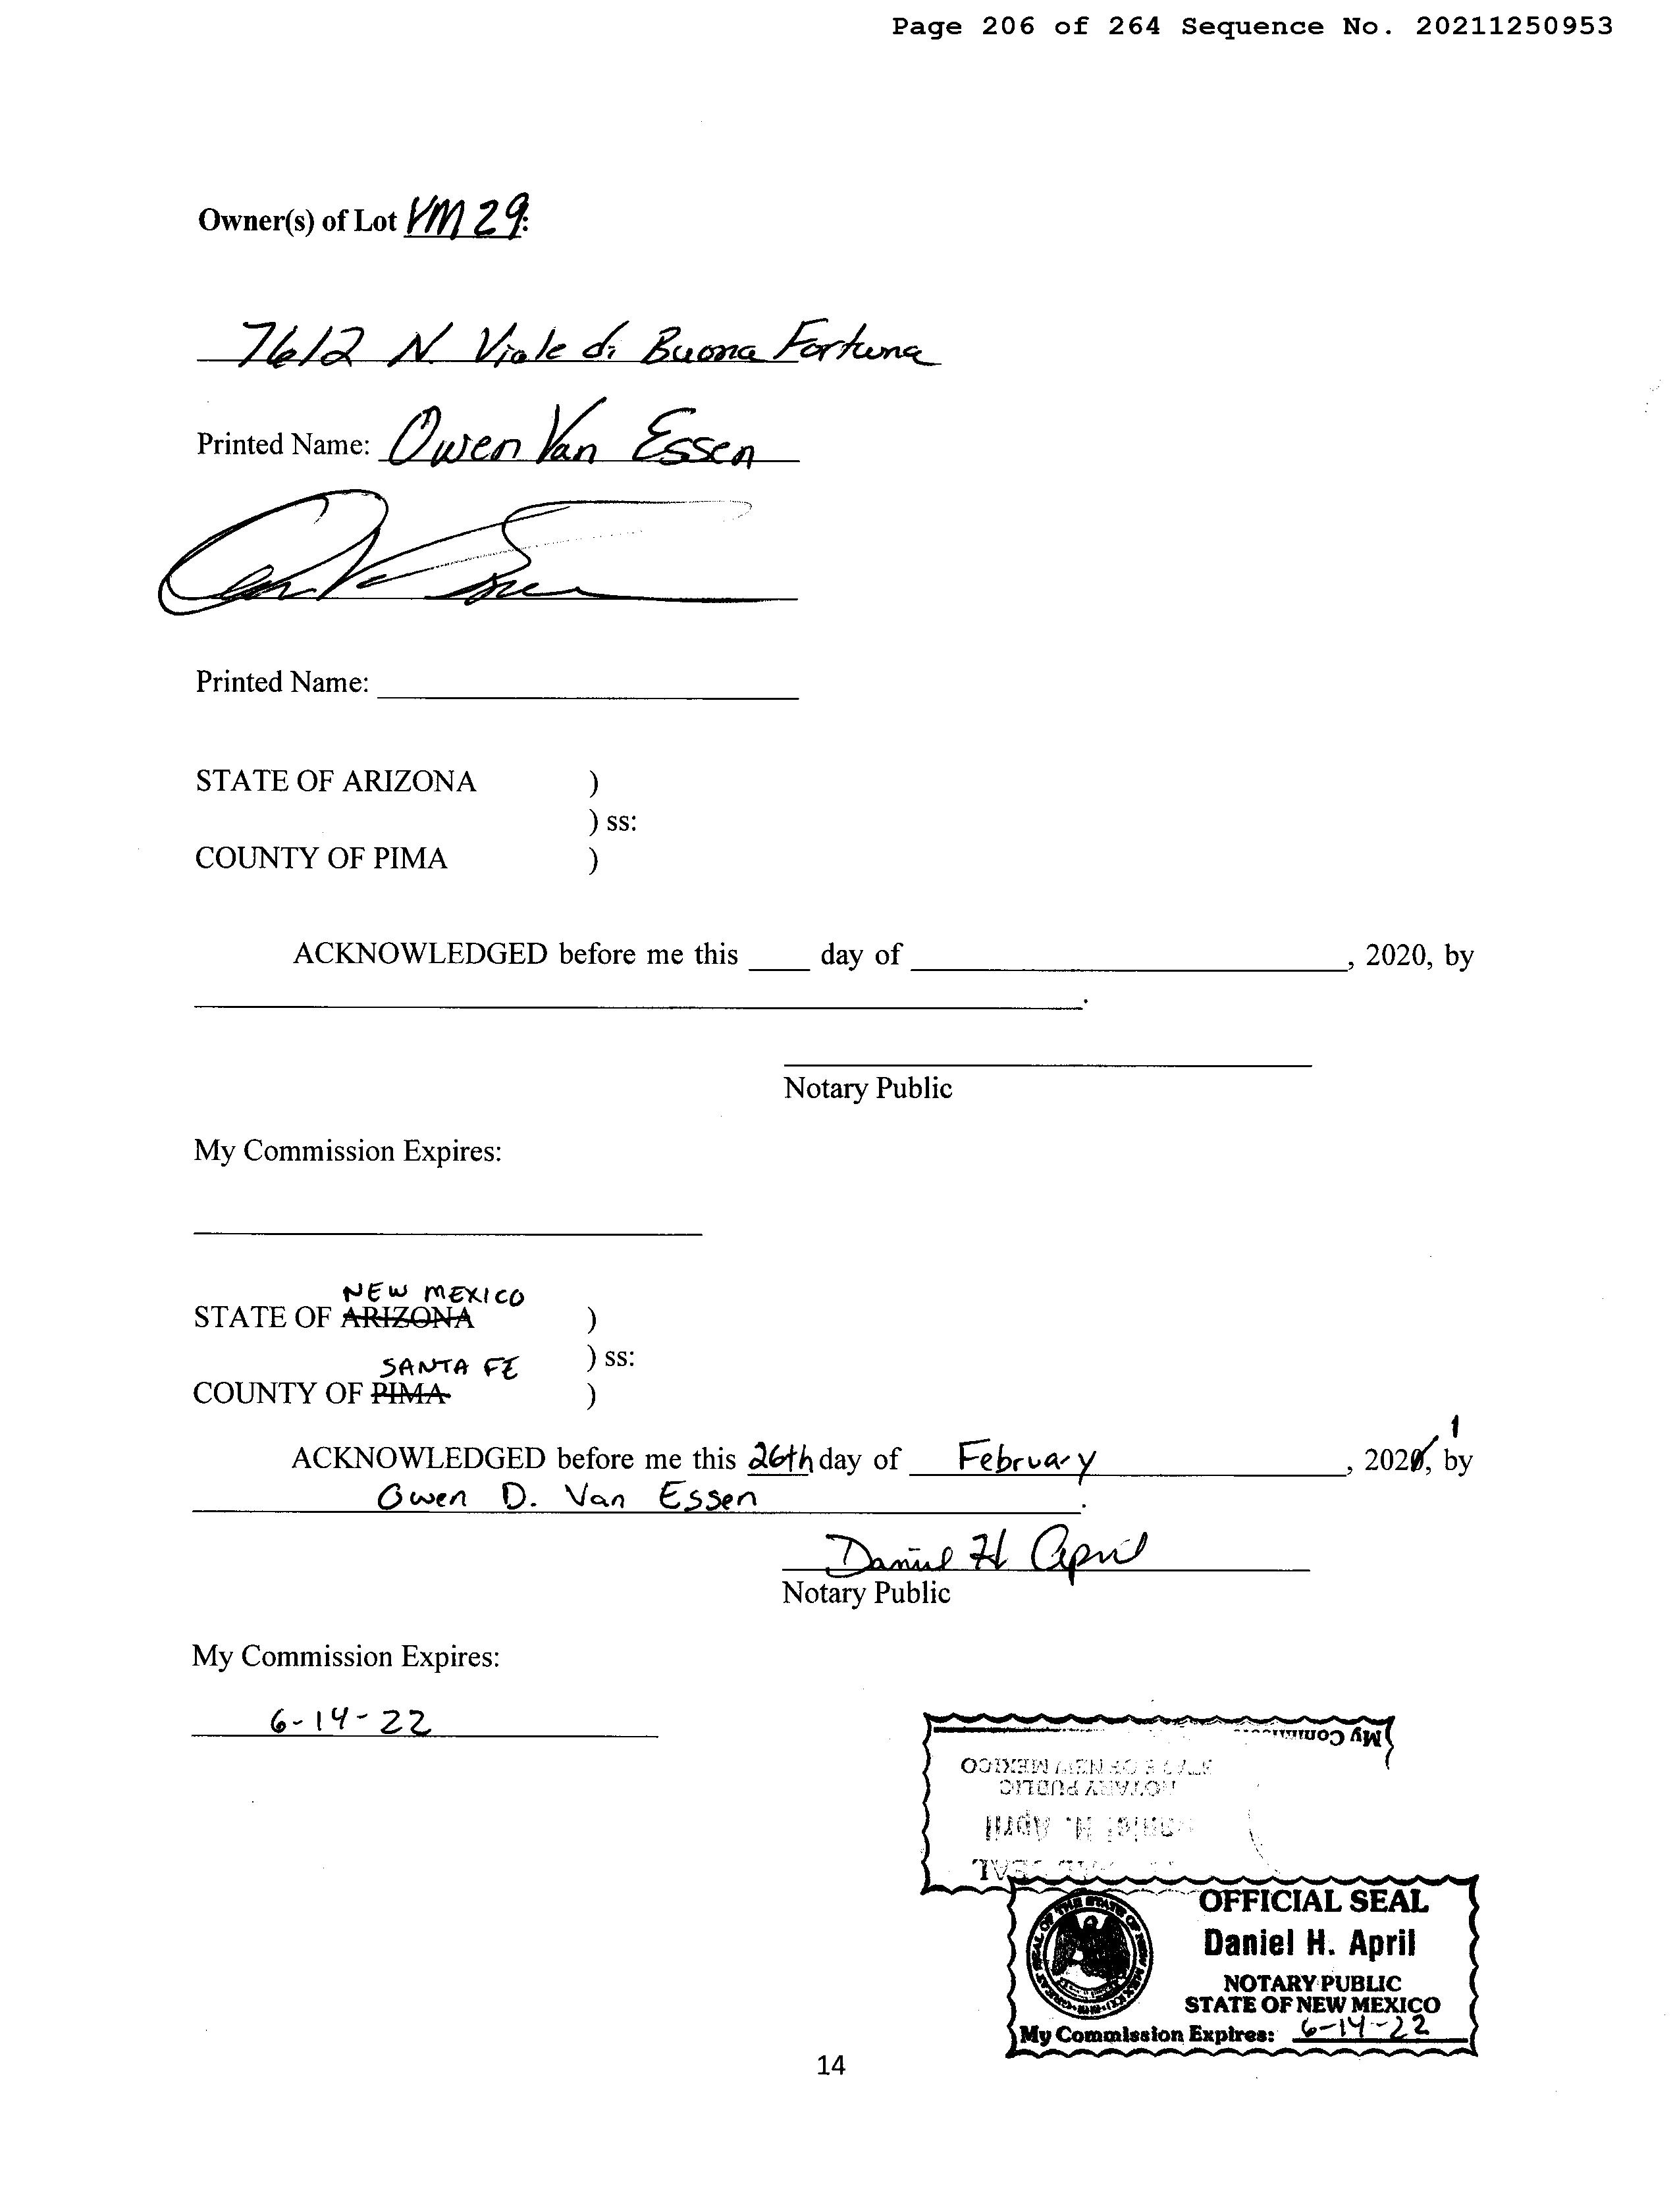 Page 206 of 264 Sequence No. 20211250953
Owner(s) of Lot VM 29:
7612 N. Viale di Buona Fortuna
Printed Name: Owen Van Essen
Printed Name:
STATE OF ARIZONA )
) ss:
COUNTY OF PIMA )
ACKNOWLEDGED before me this ____ day of ____, 2020, by
.
Notary Public
My Commission Expires:
NEW MEXICO
STATE OF ARIZONA )
SANTA FE ) ss:
COUNTY OF PIMA )
1
ACKNOWLEDGED before me this 26th day of February, 2020, by
Owen D. Van Essen.
Daniel H April
Notary Public
My Commission Expires:
6-14-22
My
STATE OF NEW MEXICO
NOTARY PUBLIC
Daniel H. April
SEAL
OFFICIAL SEAL
Daniel H. April
NOTARY PUBLIC
STATE OF NEW MEXICO
My Commission Expires: 6-14-22
14